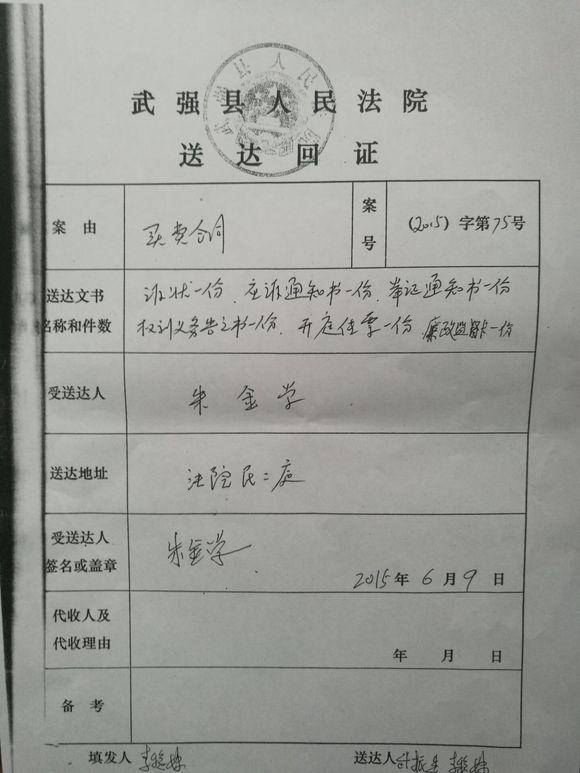 武强县人民法院
送达回证
案由 买卖合同 案号 (2015)字第75号
送达文书名称和件数
诉状一份、应诉通知书一份、举证通知书一份
权利义务告之书一份、开庭传票一份、廉政监督卡一份
受送达人 朱金学
送达地址 法院民二庭
受送达人签名或盖章 朱金学
2015年6月9日
代收人及代收理由
年 月 日
备考
填发人
送达人